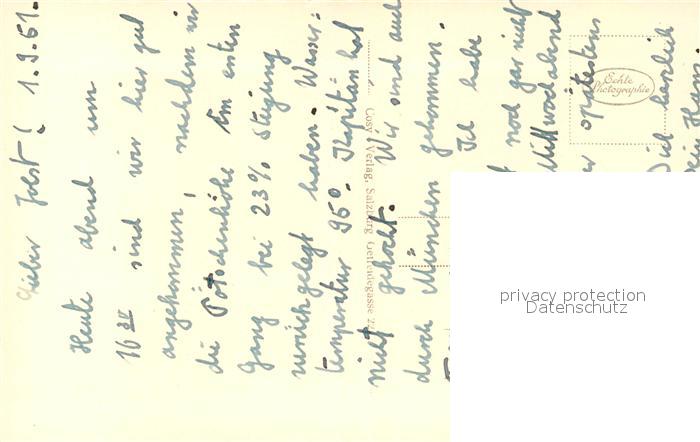 Lieber Jobst! 1.9.61.
Heute abend um
16 30 sind wir hier gut
angekommen, nachdem wir
die Pötschenhöhe im ersten
Gang bei 23% Steigung
zurückgelegt haben. Wasser=
temperatur 95°. Kapitän hat
nicht gekocht. Wir sind auch
durch München gekommen.
Ich habe
noch gar nicht
Mittwoch abend
spätestens
Dich herzlich
Dein Hans
Cosy Verlag, Salzburg, Getreidegasse 22
Echte
Photographie
privacy protection
Datenschutz